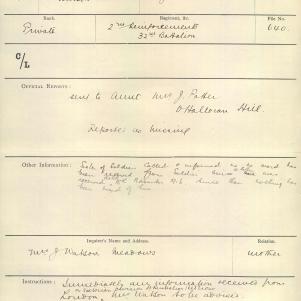 Rank
Regiment, &c.
File No
Private
2nd Reinforcements
32nd Battalion
640.
C/L
OFFICIAL REPORTS:
sent to Aunt Mrs J. Fisher
O'Halloran Hill
Reported as Missing
Other Information:
Sister of Soldier called & informed us no word has
been received from Soldier since
received November 916 since then nothing has
been heard of him
Inquirer's Name and Address.
Relation.
Mrs J Watson Meadows
mother
Instructions:
Immediately any information received from
London, Mrs Watson to be advised